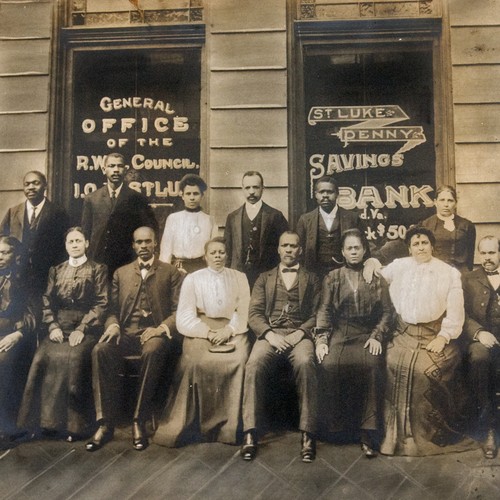 GENERAL
OFFICE
OF THE
R.W.G. COUNCIL,
I.O. ST LU
ST LUKE
PENNY
SAVINGS
BANK
d. Va.
k $50